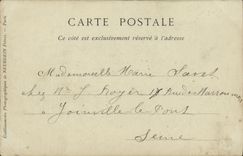 CARTE POSTALE
Ce côté est exclusivement réservé à l'adresse
Mademoiselle Marie
chez Mme J Royer 17 Rue des
Joinville le Pont
Seine
Etablissements Photographiques de NEURDEIN Frères. — Paris